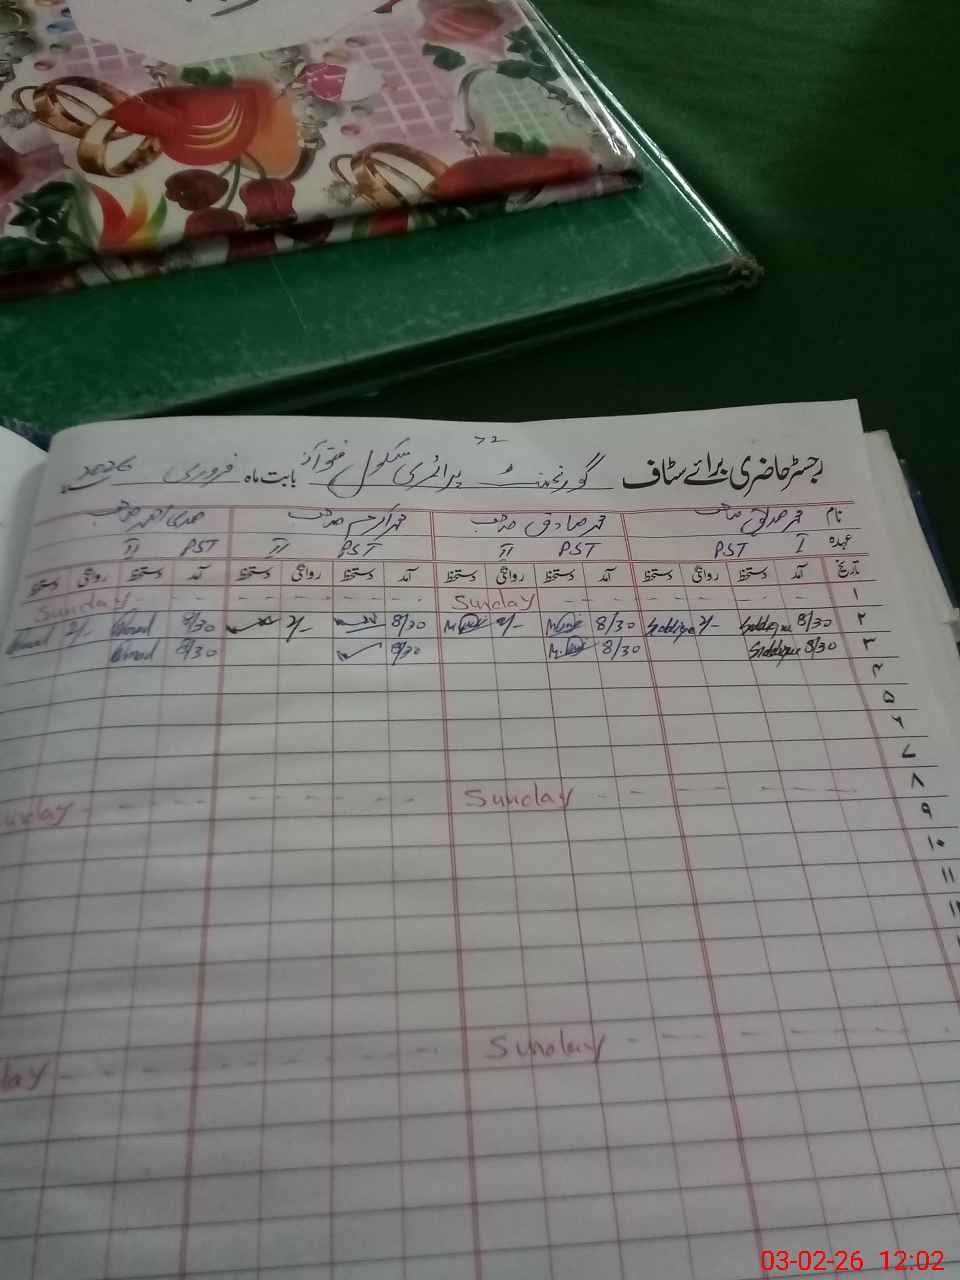 72
رجسٹر حاضری برائے سٹاف گورنمنٹ پرائمری سکول بابت ماہ فروری 2026
نام محمد صدیق صاحب محمد صادق صاحب محمد اکرم صاحب
عہدہ PST I PST II PST II PST II
تاریخ آمد دستخط روانگی دستخط آمد دستخط روانگی دستخط آمد دستخط روانگی دستخط آمد دستخط روانگی دستخط
۱ Sunday Sunday
۲ 8/30 Siddique 2/- Siddique 8/30 2/- 8/30 2/- 8/30 Ahmad 2/- Ahmad
۳ 8/30 Siddique 8/30 8/30 8/30 Ahmad
۴
۵
۶
۷
۸ Sunday Sunday
۹
۱۰
۱۱
Sunday
03-02-26 12:02